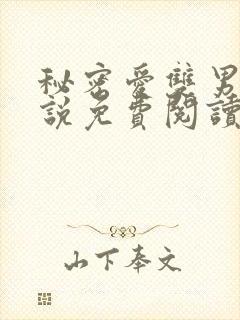 秘密爱雙男
說免費閱讀
山下奉文